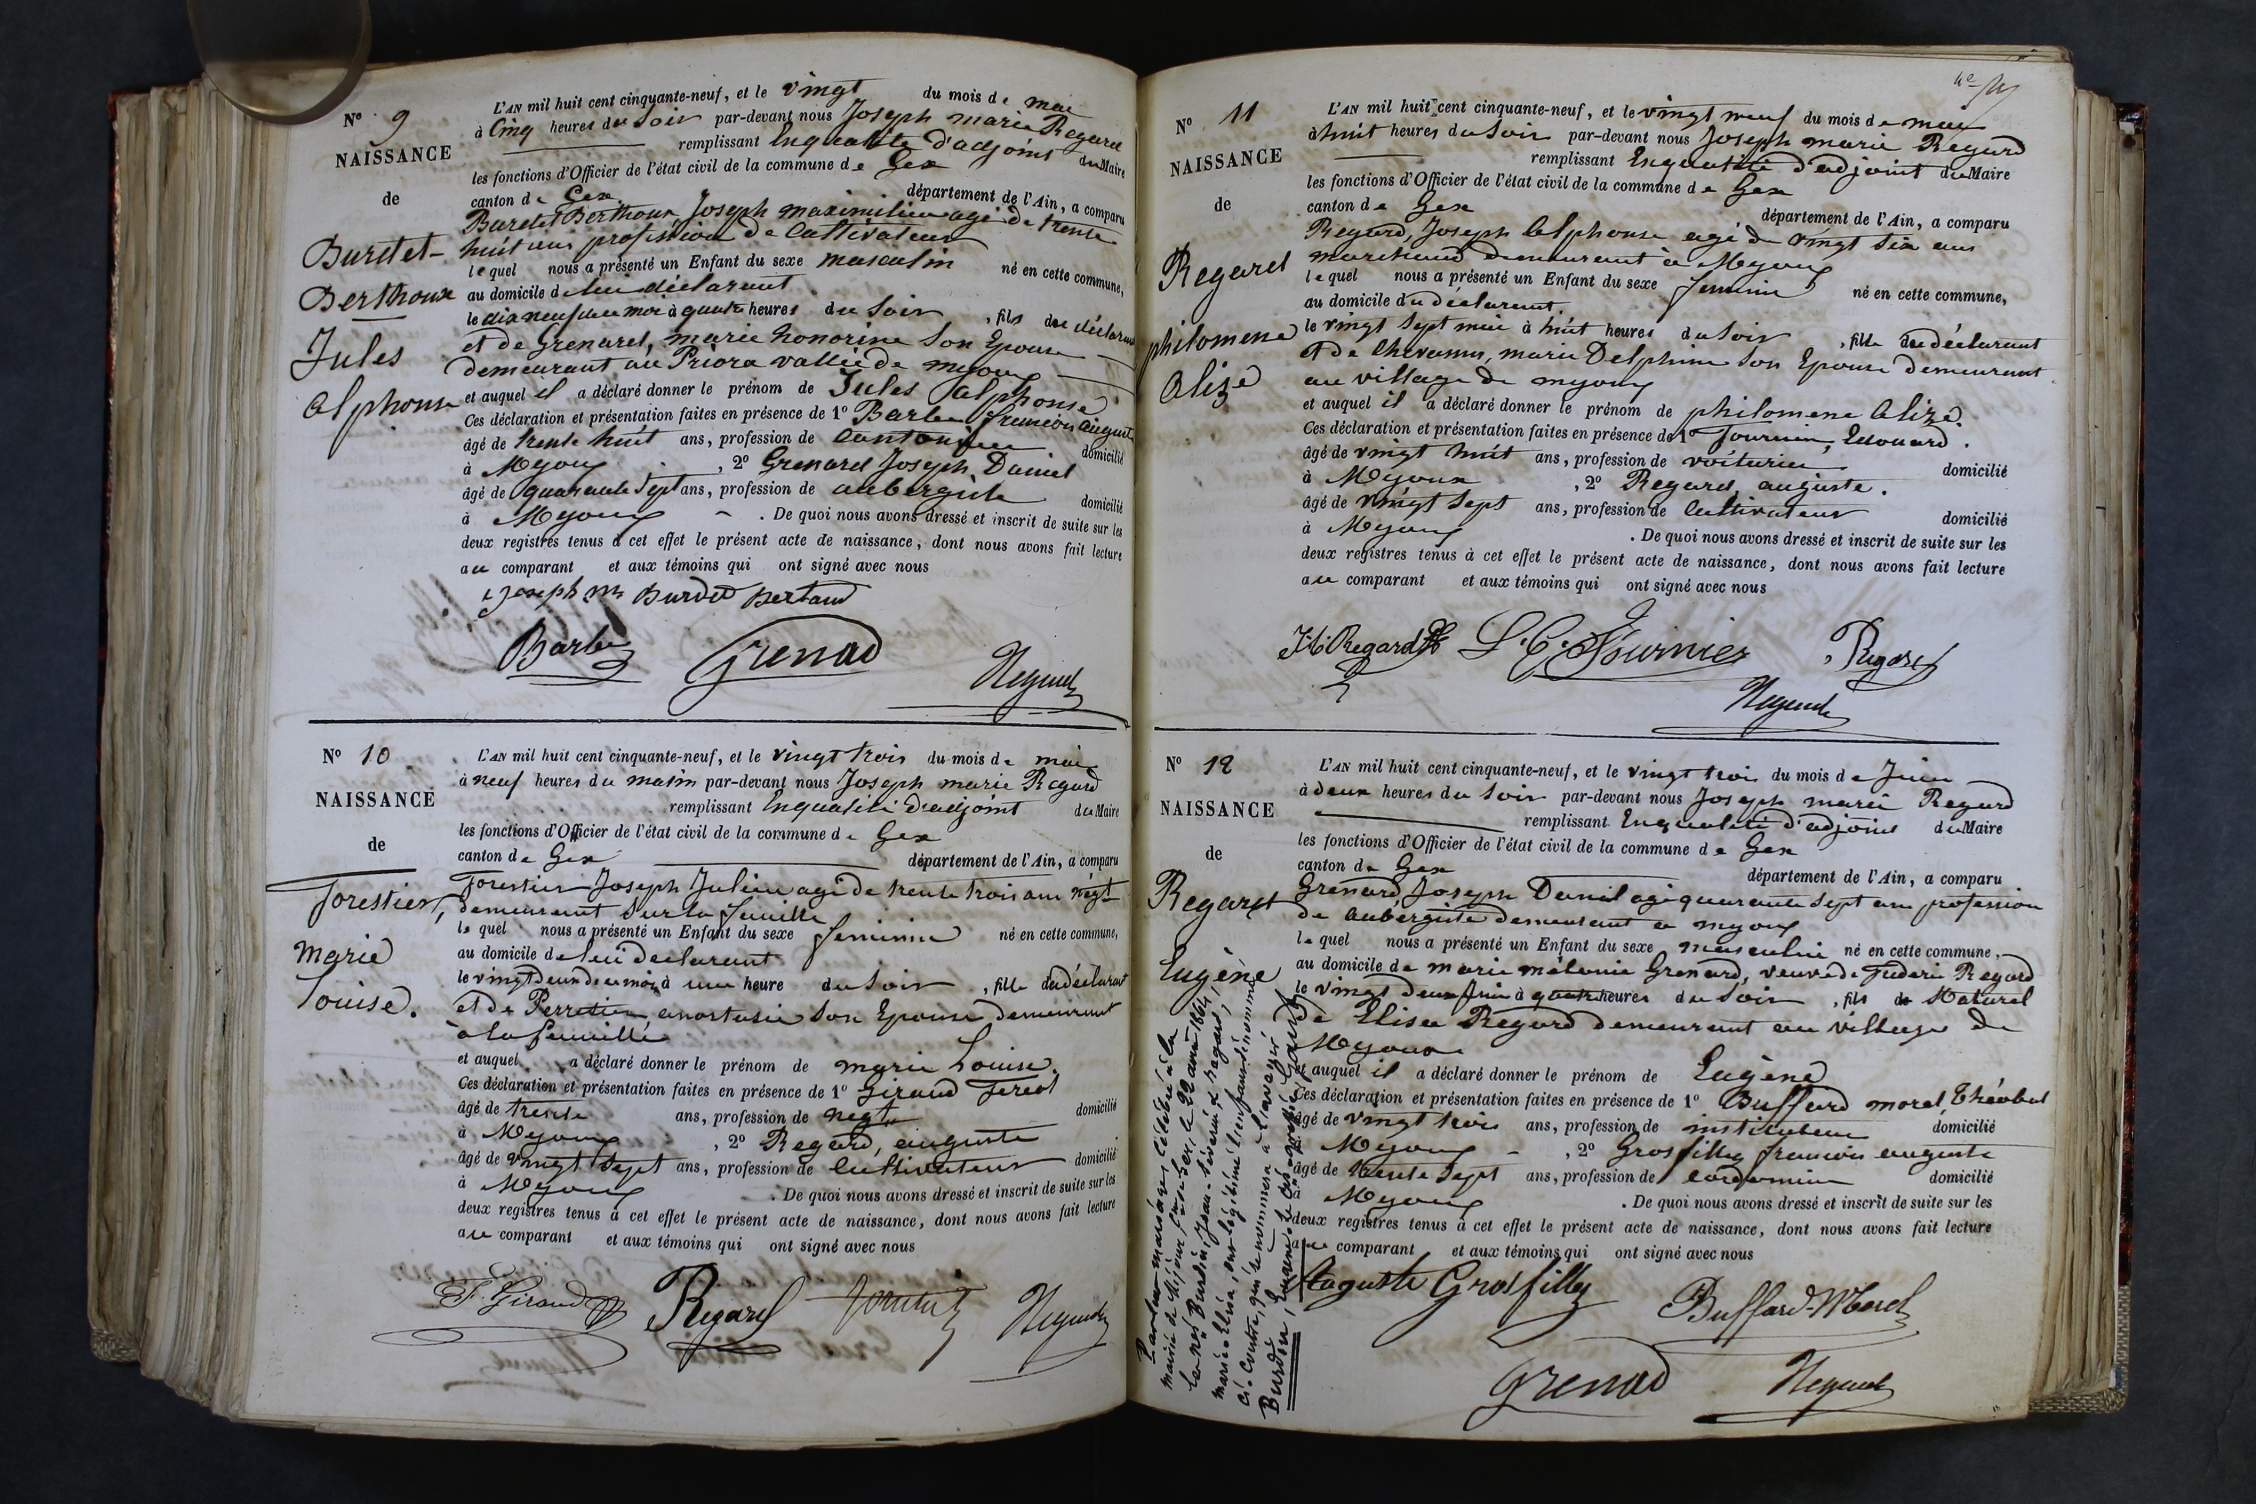 N° 9
NAISSANCE
de
Burdet-
Berthoux
Jules
Alphonse
L'AN mil huit cent cinquante-neuf, et le vingt du mois de mai
à Cinq heures du Soir par-devant nous Joseph marie Regard
remplissant Enqualité d'adjoint du Maire
les fonctions d'Officier de l'état civil de la commune de Gex
canton de Gex département de l'Ain, a comparu
Burdet Berthoux, Joseph maximilien agé de trente
huit ans profession de Cultivateur
lequel nous a présenté un Enfant du sexe masculin né en cette commune,
au domicile de lui déclarant
le dix neuf du moi à quatre heures du Soir, fils du déclarant
et de Grenard, marie honorine Son Epouse
demeurant au Priora vallée de myoux
et auquel il a déclaré donner le prénom de Jules Alphonse
Ces déclaration et présentation faites en présence de 1° Barbe françois auguste
âgé de trente huit ans, profession de Cantonnier domicilié
à Myoux, 2° Grenard Joseph Daniel
âgé de quarante sept ans, profession de aubergiste domicilié
à Myoux. De quoi nous avons dressé et inscrit de suite sur les
deux registres tenus à cet effet le présent acte de naissance, dont nous avons fait lecture
au comparant et aux témoins qui ont signé avec nous
Joseph m Burdet Bertoud
Barbe Grenad
Regard
N° 10
NAISSANCE
de
Forestier,
marie
Louise.
L'AN mil huit cent cinquante-neuf, et le vingt trois du mois de mai
à neuf heures du matin par-devant nous Joseph marie Regard
remplissant Enqualité d'adjoint du Maire
les fonctions d'Officier de l'état civil de la commune de Gex
canton de Gex département de l'Ain, a comparu
Forestier Joseph Julien agé de trente trois ans négt
demeurant Sur la faucille
lequel nous a présenté un Enfant du sexe feminin né en cette commune,
au domicile de lui declarant
le vingt deux du moi, à une heure du Soir, fille du déclarant
et de Perretin anastasie Son Epouse demeurant
à la faucille
et auquel a déclaré donner le prénom de marie Louise.
Ces déclaration et présentation faites en présence de 1° Giraud fereol
âgé de trente ans, profession de negt domicilié
à Myoux, 2° Regard, auguste
âgé de vingt Sept ans, profession de Cultivateur domicilié
à Myoux. De quoi nous avons dressé et inscrit de suite sur les
deux registres tenus à cet effet le présent acte de naissance, dont nous avons fait lecture
au comparant et aux témoins qui ont signé avec nous
F. Giraud Regard Regard
N° 11
NAISSANCE
de
Regard
philomene
Alize
L'AN mil huit cent cinquante-neuf, et le vingt neuf du mois de mai
à huit heures du Soir par-devant nous Joseph marie Regard
remplissant Enqualité d'adjoint du Maire
les fonctions d'Officier de l'état civil de la commune de Gex
canton de Gex département de l'Ain, a comparu
Regard, Joseph Alphonse agé de vingt six ans
marchand demeurant à Myoux
lequel nous a présenté un Enfant du sexe feminin né en cette commune,
au domicile du declarant.
le vingt Sept mai à huit heures du Soir, fille du déclarant
et de Chevassus, marie Delphine Son Epouse demeurant
au village de myoux
et auquel il a déclaré donner le prénom de philomene Alize.
Ces déclaration et présentation faites en présence de 1° Fournier, Edouard.
âgé de vingt huit ans, profession de voiturier domicilié
à Myoux, 2° Regard, auguste.
âgé de vingt Sept ans, profession de Cultivateur domicilié
à Myoux. De quoi nous avons dressé et inscrit de suite sur les
deux registres tenus à cet effet le présent acte de naissance, dont nous avons fait lecture
au comparant et aux témoins qui ont signé avec nous
Regard L. E. Fournier Regard
Regard
N° 12
NAISSANCE
de
Regard
Eugéne
L'AN mil huit cent cinquante-neuf, et le vingt trois du mois de Juin
à deux heures du Soir par-devant nous Joseph marie Regard
remplissant Enqualité d'adjoint du Maire
les fonctions d'Officier de l'état civil de la commune de Gex
canton de Gex département de l'Ain, a comparu
Grenard, Joseph Daniel agé quarante Sept ans profession
de aubergiste demeurant a myoux
lequel nous a présenté un Enfant du sexe masculin né en cette commune,
au domicile de marie mélanie Grenard, veuve de Regard
le vingt deux Juin à quatre heures du Soir, fils Naturel
De Elisa Regard demeurant au village de
Myoux
et auquel il a déclaré donner le prénom de Eugène
Ces déclaration et présentation faites en présence de 1° Buffard morel, Théobal
âgé de vingt trois ans, profession de instituteur domicilié
à Myoux, 2° Grosfilley françois auguste
âgé de trente Sept ans, profession de cordonnier domicilié
à Myoux. De quoi nous avons dressé et inscrit de suite sur les
deux registres tenus à cet effet le présent acte de naissance, dont nous avons fait lecture
au comparant et aux témoins qui ont signé avec nous
Auguste Grosfilley Buffard-Morel
Grenad Regard
Par leur mariage célébré à la
mairie de Mijoux, le 22 avril 1864,
les nés Burdin, Jean-Séverin & Regard,
marie Elisa, ont légitimé l'enfant dénommé
ci-contre, qui se nommera à l'avenir
Burdin, Eugène